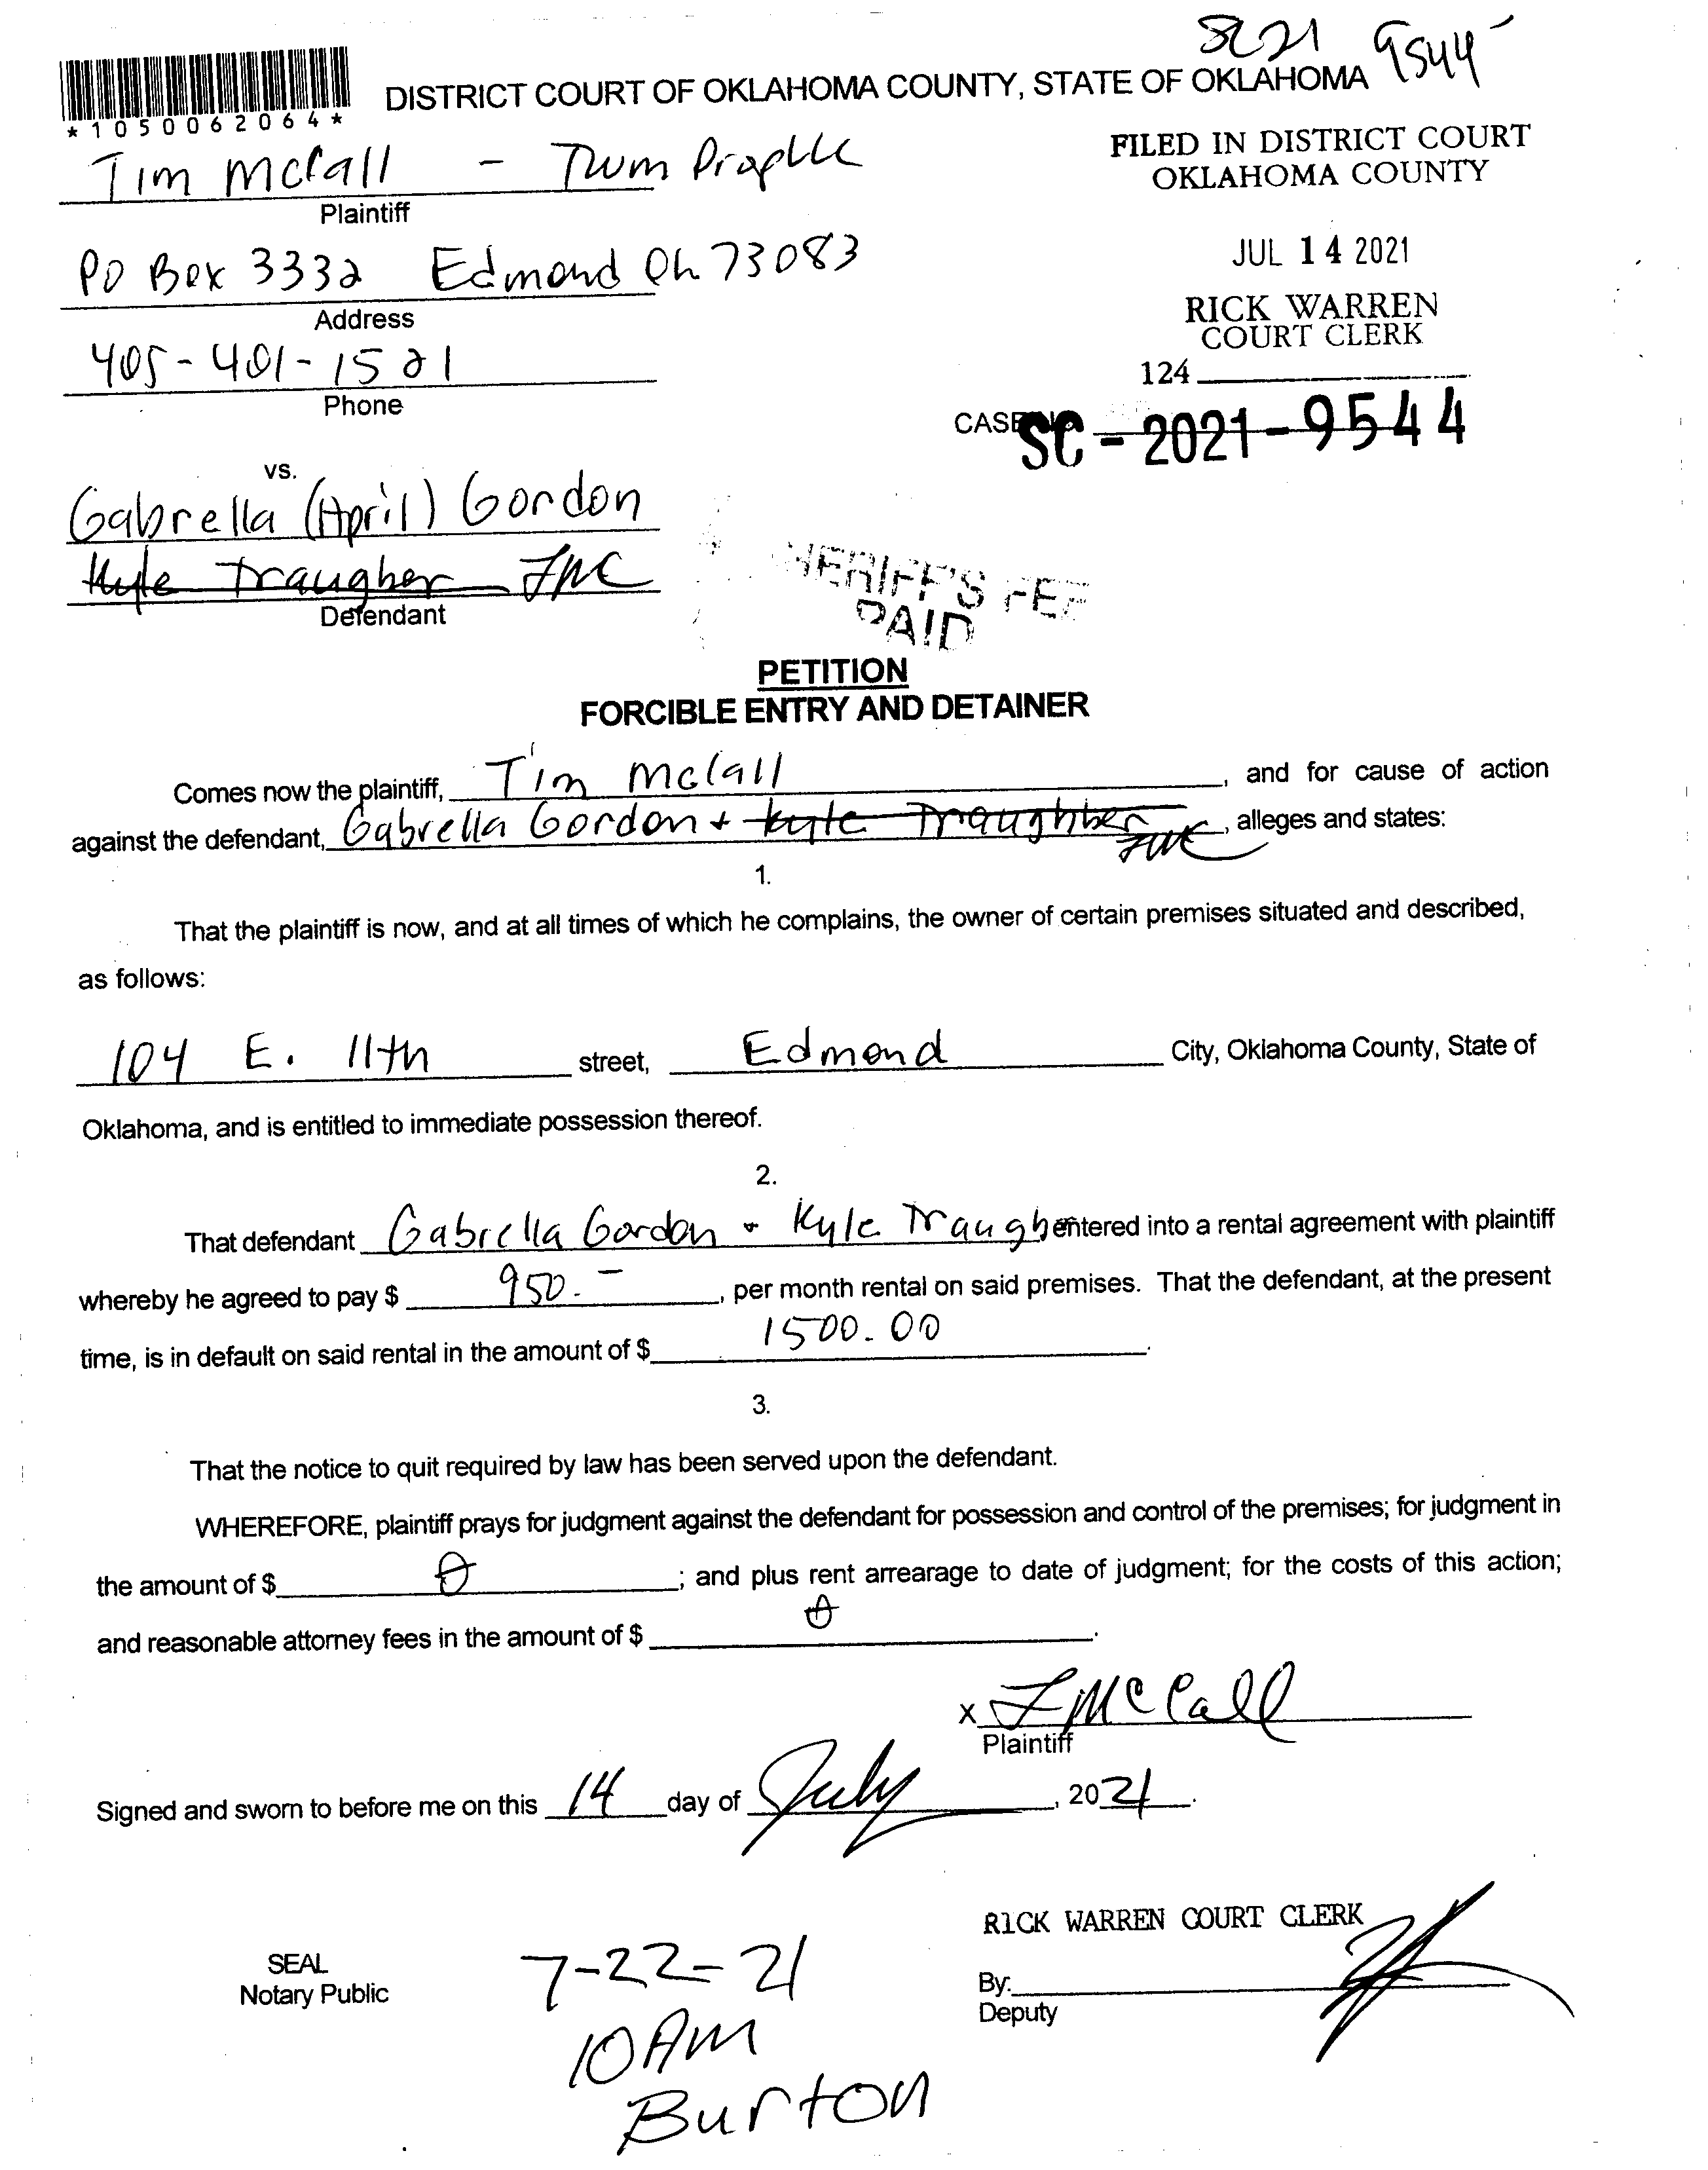 SC21 9544
DISTRICT COURT OF OKLAHOMA COUNTY, STATE OF OKLAHOMA
*1050062064*
FILED IN DISTRICT COURT
OKLAHOMA COUNTY
Tim McCall - Twm Prop LLC
Plaintiff
JUL 14 2021
PO Box 3332 Edmond Ok 73083
Address
RICK WARREN
COURT CLERK
405-401-1521
Phone
124
CASE NO. SC-2021-9544
vs.
Gabrella (April) Gordon
Kyle Traugher
Defendant
SHERIFF'S FEE
PAID
PETITION
FORCIBLE ENTRY AND DETAINER
Comes now the plaintiff, Tim McCall, and for cause of action
against the defendant, Gabrella Gordon + Kyle Traughber, alleges and states:
1.
That the plaintiff is now, and at all times of which he complains, the owner of certain premises situated and described,
as follows:
104 E. 11th street, Edmond City, Oklahoma County, State of
Oklahoma, and is entitled to immediate possession thereof.
2.
That defendant Gabrella Gordon + Kyle Traughber entered into a rental agreement with plaintiff
whereby he agreed to pay $ 950.-, per month rental on said premises. That the defendant, at the present
time, is in default on said rental in the amount of $ 1500.00.
3.
That the notice to quit required by law has been served upon the defendant.
WHEREFORE, plaintiff prays for judgment against the defendant for possession and control of the premises; for judgment in
the amount of $ 0; and plus rent arrearage to date of judgment; for the costs of this action;
and reasonable attorney fees in the amount of $ 0.
x T McCall
Plaintiff
Signed and sworn to before me on this 14 day of July, 2021.
RICK WARREN COURT CLERK
SEAL
Notary Public
By:
Deputy
7-22-21
10 AM
Burton